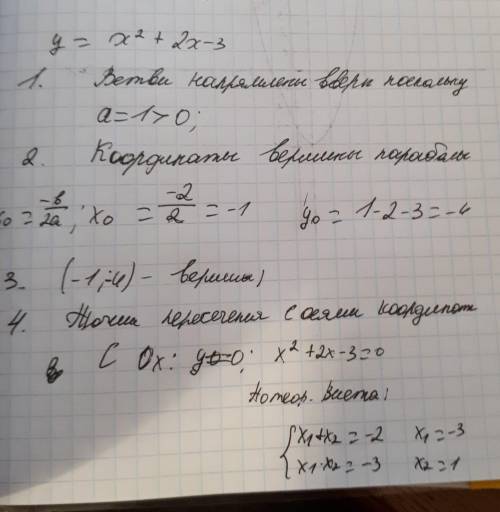 y = x² + 2x - 3
1. Ветви направлены вверх поскольку
a = 1 > 0;
2. Координаты вершины параболы
x₀ = -b/2a; x₀ = -2/2 = -1 y₀ = 1-2-3 = -4
3. (-1;-4) - вершины;
4. Точки пересечения с осями координат
С Ox: y=0; x² + 2x - 3 = 0
По теор. Виета:
{ x₁+x₂ = -2 x₁ = -3
x₁·x₂ = -3 x₂ = 1